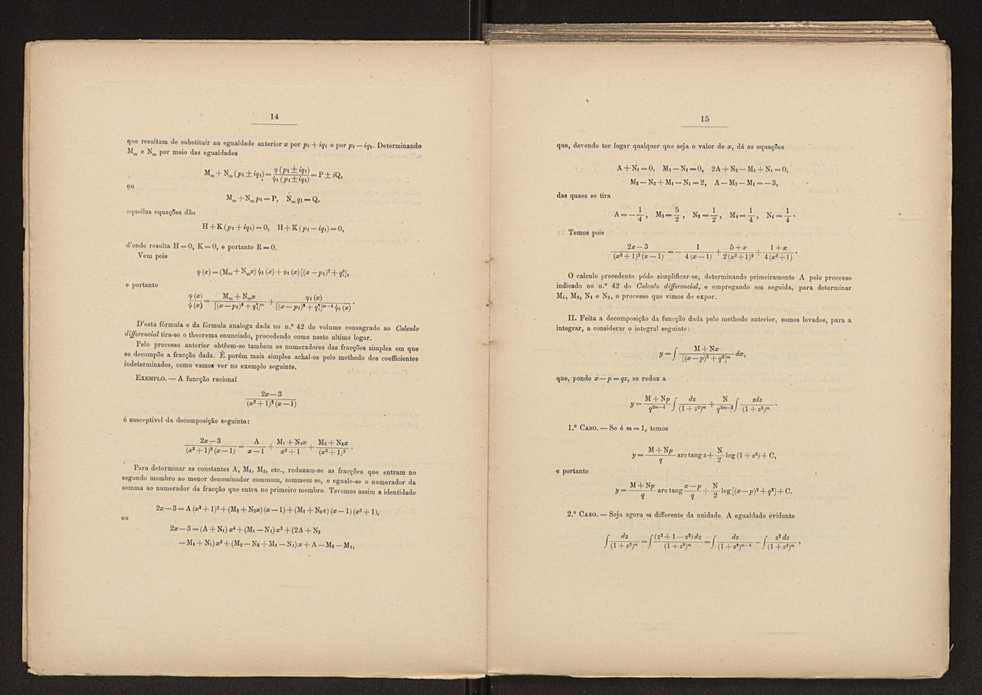 14
que resultam de substituir na egualdade anterior x por p₁ + iq₁ e por p₁ — iq₁. Determinando
Mₘ e Nₘ por meio das egualdades
Mₘ + Nₘ (p₁ ± iq₁) = φ (p₁ ± iq₁) / ψ₁ (p₁ ± iq₁) = P ± iQ,
ou
Mₘ + Nₘ p₁ = P, Nₘ q₁ = Q,
aquellas equações dão
H + K (p₁ + iq₁) = 0, H + K (p₁ — iq₁) = 0,
d'onde resulta H = 0, K = 0, e portanto R = 0.
Vem pois
φ (x) = (Mₘ + Nₘx) ψ₁ (x) + φ₁ (x) [(x — p₁)² + q₁²],
e portanto
φ (x) / ψ (x) = (Mₘ + Nₘx) / [(x — p₁)² + q₁²]ᵐ + φ₁ (x) / [(x — p₁)² + q₁²]ᵐ⁻¹ ψ₁ (x) .
D'esta fórmula e da fórmula analoga dada no n.º 42 do volume consagrado ao Calculo
differencial tira-se o theorema enunciado, procedendo como neste ultimo logar.
Pelo processo anterior obtêem-se tambem os numeradores das fracções simples em que
se decompõe a fracção dada. É porém mais simples achal-os pelo methodo dos coefficientes
indeterminados, como vamos ver no exemplo seguinte.
EXEMPLO. — A funcção racional
(2x — 3) / (x² + 1)² (x — 1)
é susceptivel da decomposição seguinte:
(2x — 3) / (x² + 1)² (x — 1) = A / (x — 1) + (M₁ + N₁x) / (x² + 1) + (M₂ + N₂x) / (x² + 1)² .
Para determinar as constantes A, M₁, M₂, etc., reduzam-se as fracções que entram no
segundo membro ao menor denominador commum, sommem-se, e eguale-se o numerador da
somma ao numerador da fracção que entra no primeiro membro. Teremos assim a identidade
2x — 3 = A (x² + 1)² + (M₂ + N₂x) (x — 1) + (M₁ + N₁x) (x — 1) (x² + 1),
ou
2x — 3 = (A + N₁) x⁴ + (M₁ — N₁) x³ + (2A + N₂
— M₁ + N₁) x² + (M₂ — N₂ + M₁ — N₁) x + A — M₂ — M₁,
15
que, devendo ter logar qualquer que seja o valor de x, dá as equações
A + N₁ = 0, M₁ — N₁ = 0, 2A + N₂ — M₁ + N₁ = 0,
M₂ — N₂ + M₁ — N₁ = 2, A — M₂ — M₁ = — 3,
das quaes se tira
A = — 1/4 , M₂ = 5/2 , N₂ = 1/2 , M₁ = 1/4 , N₁ = 1/4 .
Temos pois
(2x — 3) / (x² + 1)² (x — 1) = — 1 / 4 (x — 1) + (5 + x) / 2 (x² + 1)² + (1 + x) / 4 (x² + 1) .
O calculo precedente póde simplificar-se, determinando primeiramente A pelo processo
indicado no n.º 42 do Calculo differencial, e empregando em seguida, para determinar
M₁, M₂, N₁ e N₂, o processo que vimos de expor.
II. Feita a decomposição da funcção dada pelo methodo anterior, somos levados, para a
integrar, a considerar o integral seguinte:
y = ∫ (M + Nx) / [(x — p)² + q²]ᵐ dx,
que, pondo x — p = qz, se reduz a
y = (M + Np) / q²ᵐ⁻¹ ∫ dz / (1 + z²)ᵐ + N / q²ᵐ⁻² ∫ zdz / (1 + z²)ᵐ .
1.º CASO. — Se é m = 1, temos
y = (M + Np) / q arc tang z + N/2 log (1 + z²) + C,
e portanto
y = (M + Np) / q arc tang (x — p) / q + N/2 log [(x — p)² + q²] + C.
2.º CASO. — Seja agora m differente da unidade. A egualdade evidente
∫ dz / (1 + z²)ᵐ = ∫ (z² + 1 — z²) dz / (1 + z²)ᵐ = ∫ dz / (1 + z²)ᵐ⁻¹ — ∫ z² dz / (1 + z²)ᵐ ,